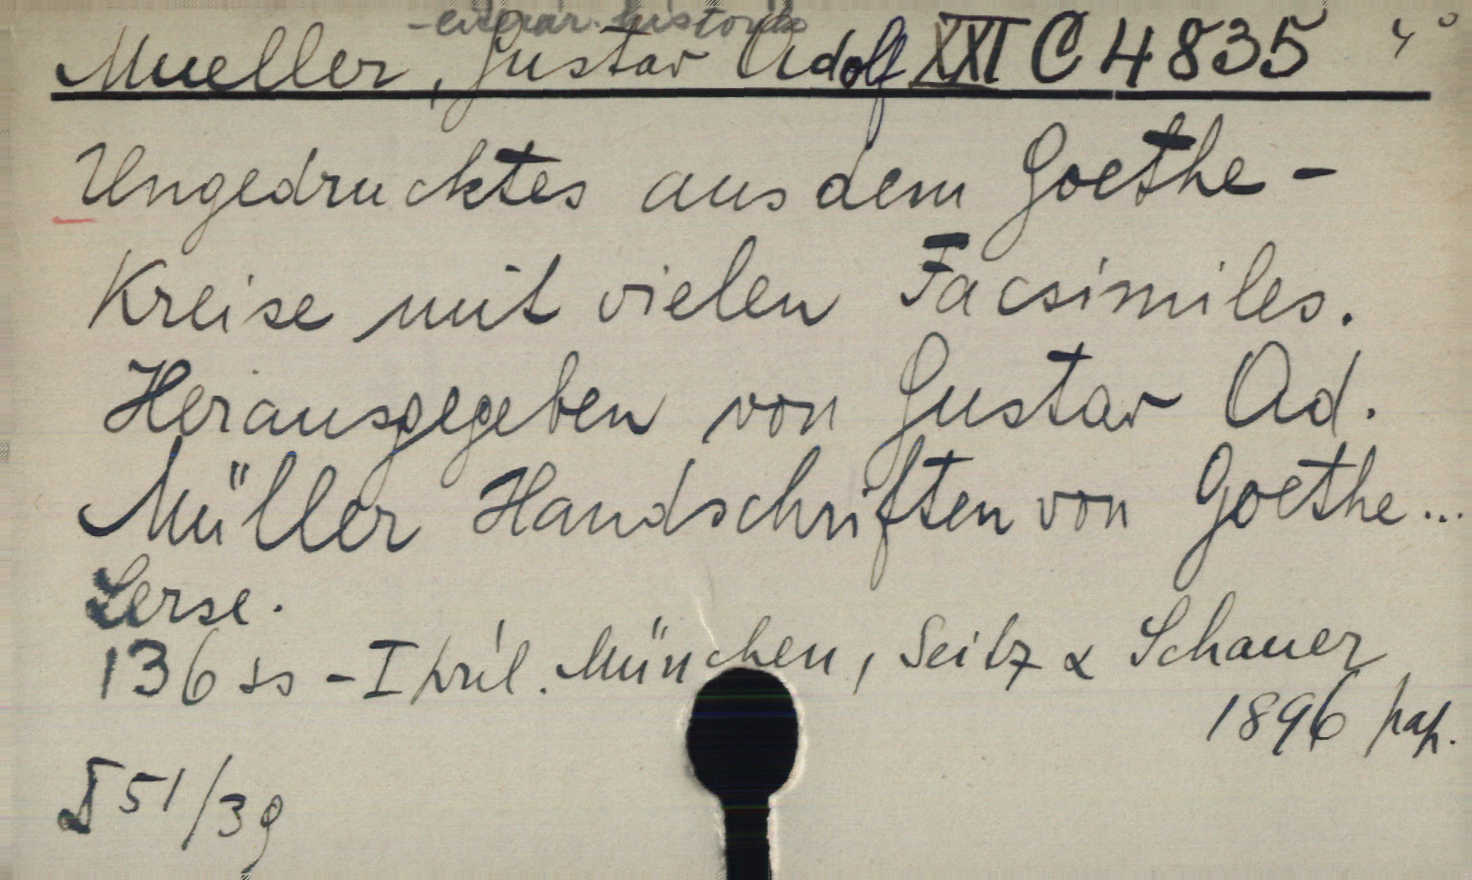 Mueller, Gustav Adolf XXI C 4835 4°
Ungedrucktes aus dem Goethe-
Kreise mit vielen Facsimiles.
Herausgegeben von Gustav Ad.
Müller Handschriften von Goethe...
Lerse.
136 ss - I příl. München, Seitz & Schauer
1896 pap.
51/39